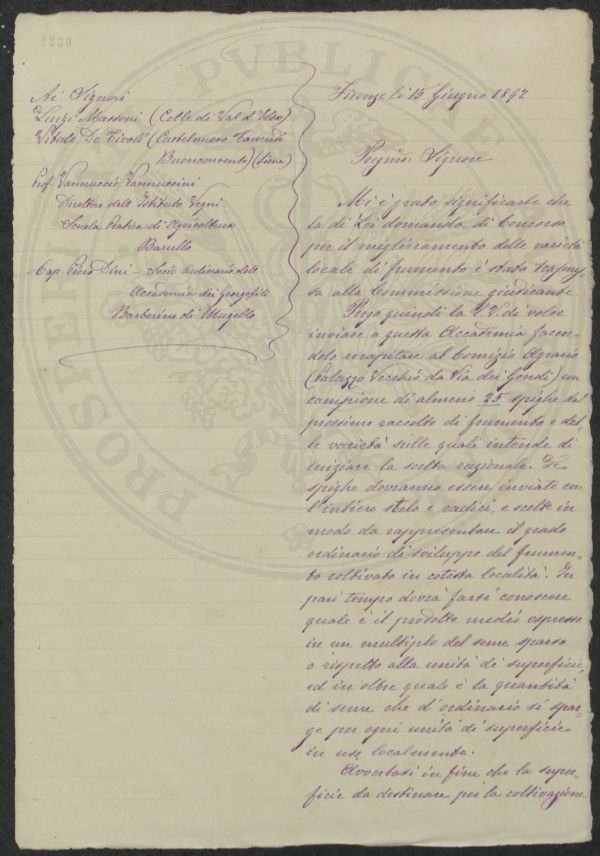 1230
Ai Signori
Luigi Massoni (Colle di Val d'Elsa)
Vitale De Tivoli (Castelnuovo Tancredi
Buonconvento) (Siena)
Prof. Vannuccio Vannuccini
Direttore dell'Istituto Vegni
Scuola Pratica di Agricoltura
Barullo
Cap. Piero Dini - Socio ordinario dell'
Accademia dei Georgofili
Barberino di Mugello
Firenze li 15 Giugno 1892
Pregmo Signore
Mi è grato significarle che
la di Lei domanda, di Concorso
per il miglioramento delle varietà
locale di frumento è stata trasmes-
sa alla Commissione giudicante.
Prego quindi la S.V. di voler
inviare a questa Accademia facen-
dolo recapitare al Comizio Agrario
(Palazzo Vecchio da Via dei Gondi) un
campione di almeno 25 spighe del
prossimo raccolto di frumento e del
le varietà sulle quali intende di
iniziare la scelta razionale. Le
spighe dovranno essere inviate con
l'intiero stelo e radici, e scelte in
modo da rappresentare il grado
ordinario di sviluppo del frumen-
to coltivato in cotesta località. In
pari tempo dovrà farsi conoscere
quale è il prodotto medio espresso
in un multiplo del seme sparso
o rispetto alla unità di superficie,
ed in oltre quale è la quantità
di seme che d'ordinario si spar-
ge per ogni unità di superficie
in uso localmente.
Avvertasi in fine che la super-
ficie da destinare per la coltivazione
PROSPERITATI PUBLICAE